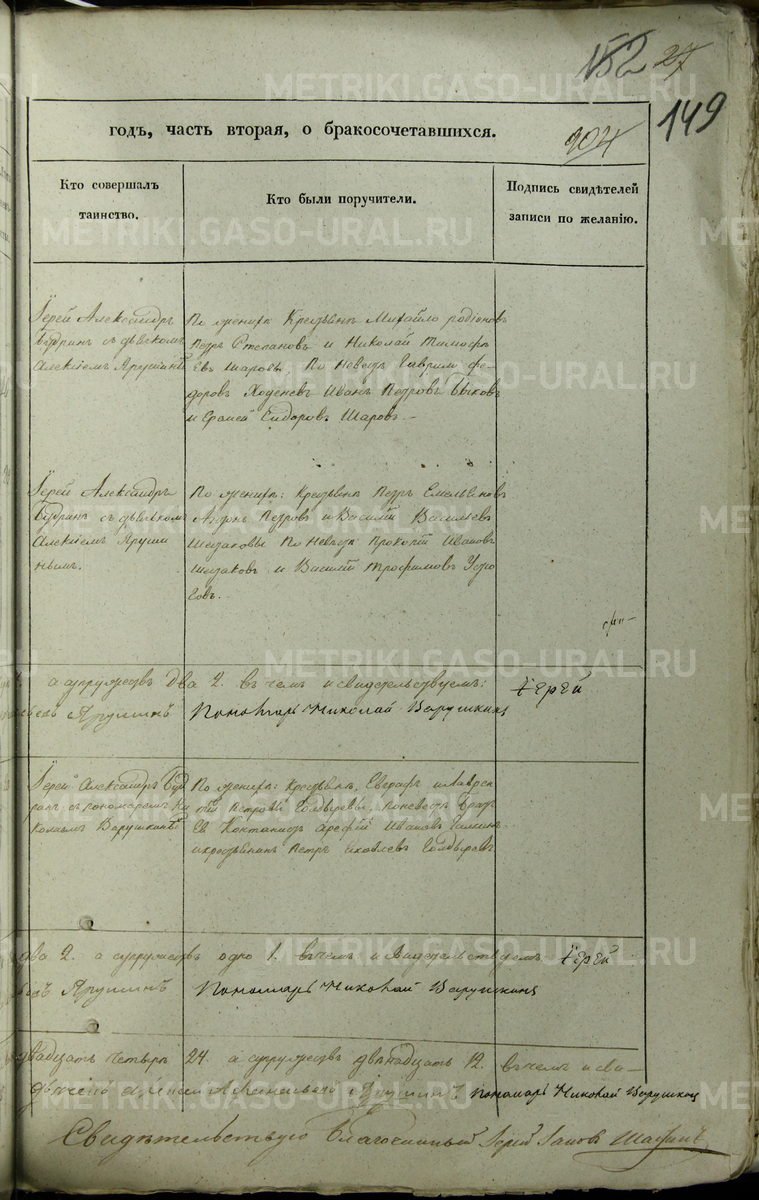 152 27
149
годъ, часть вторая, о бракосочетавшихся.
204
Кто совершалъ
таинство.
Кто были поручители.
Подпись свидѣтелей
записи по желанію.
Іерей Александръ
Будринъ съ дьячкомъ
Алексіемъ Ярушинымъ
По женихѣ Крестьяне Михайло Родіоновъ
Петръ Степановъ и Николай Тимофѣ
евъ Шаровы, По Невестѣ Гаврило Фе-
доровъ Ходеневъ Иванъ Петровъ Быковъ
и Сидоровъ Шаровъ
Іерей Александръ
Будринъ съ дьячкомъ
Алексіемъ Яруши
нымъ.
По женихѣ: Крестьяне Петръ Емельяновъ
Антонъ Петровъ и Василій Васильевъ
По Невестѣ Прокопій Ивановъ
и Василій Трофимовъ
а супружествъ два 2. въ чемъ и свидетельствуемъ: Іерей
Ярушинъ Пономарь Николай Варушкинъ
Іерей Александръ Буд
ринъ съ пономаремъ Ни
колаемъ Варушкинымъ
По женихѣ: Крестьяне, Евграфъ и Лаврен
тій Петровы Голдыревы, по невестѣ
Арефій Ивановъ
и крестьянинъ Петръ Яковлевъ Голдыревъ
два 2. а супружествъ одно 1. въ чемъ и свидетельствуемъ Іерей
Ярушинъ Пономарь Николай Варушкинъ
двадцать четыре 24. а супружествъ двѣнадцать 12. въ чемъ и сви-
Ярушинъ пономарь Николай Варушкинъ
Свидѣтельствую Благочинный Іерей Іаковъ
METRIKI.GASO-URAL.RU